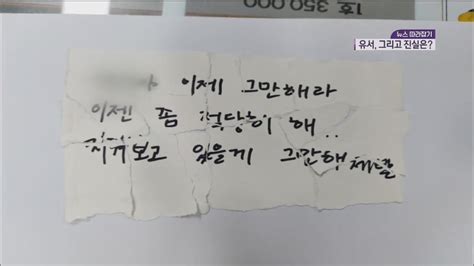 1호 350,000
뉴스 따라잡기
유서, 그리고 진실은?
이제 그만해라
이젠 좀 적당히 해..
지켜보고 있을께 그만해